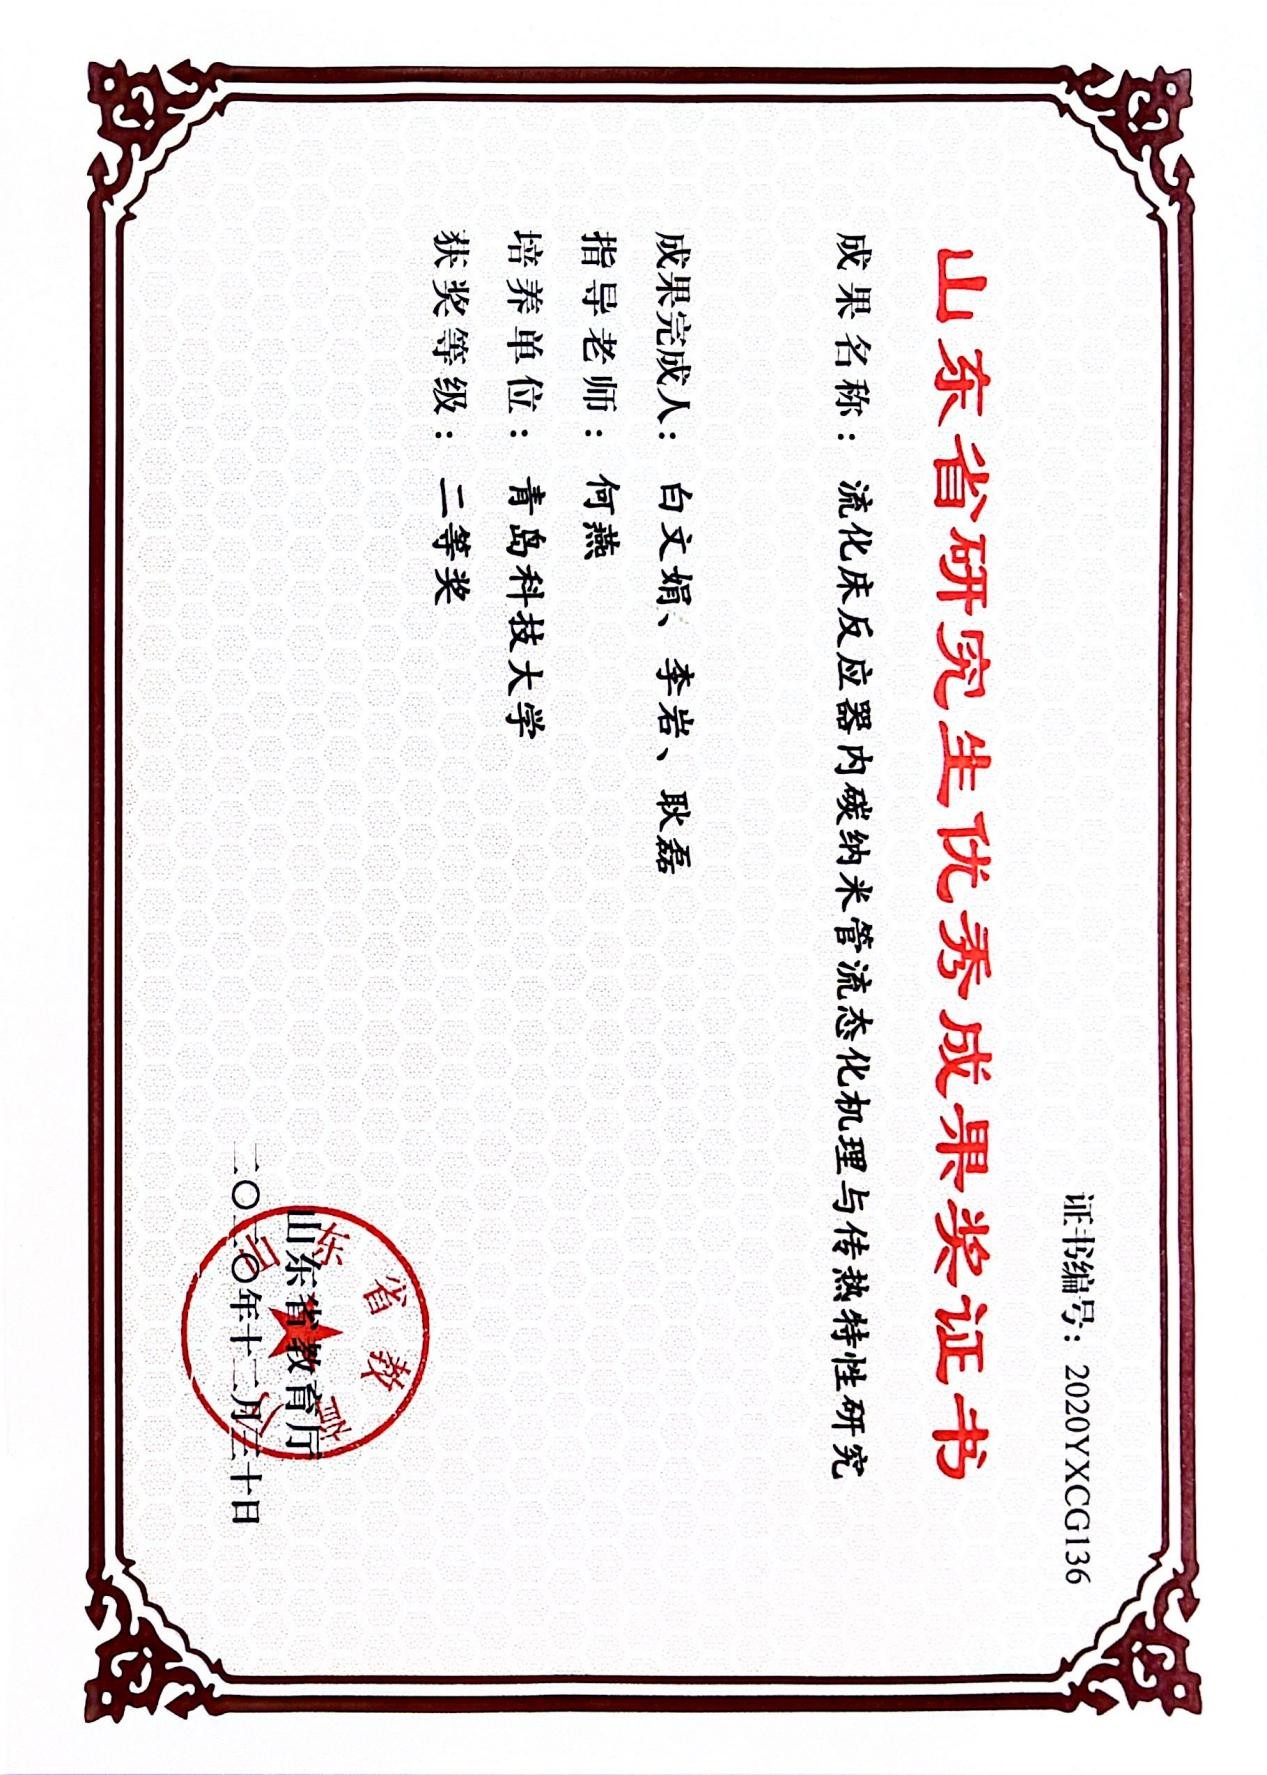 证书编号：2020YXCG136
山东省研究生优秀成果奖证书
成果名称：流化床反应器内碳纳米管流态化机理与传热特性研究
成果完成人：白文娟、李岩、耿磊
指导老师：何燕
培养单位：青岛科技大学
获奖等级：二等奖
山东省教育厅
山东省教育厅
二〇二〇年十二月三十日